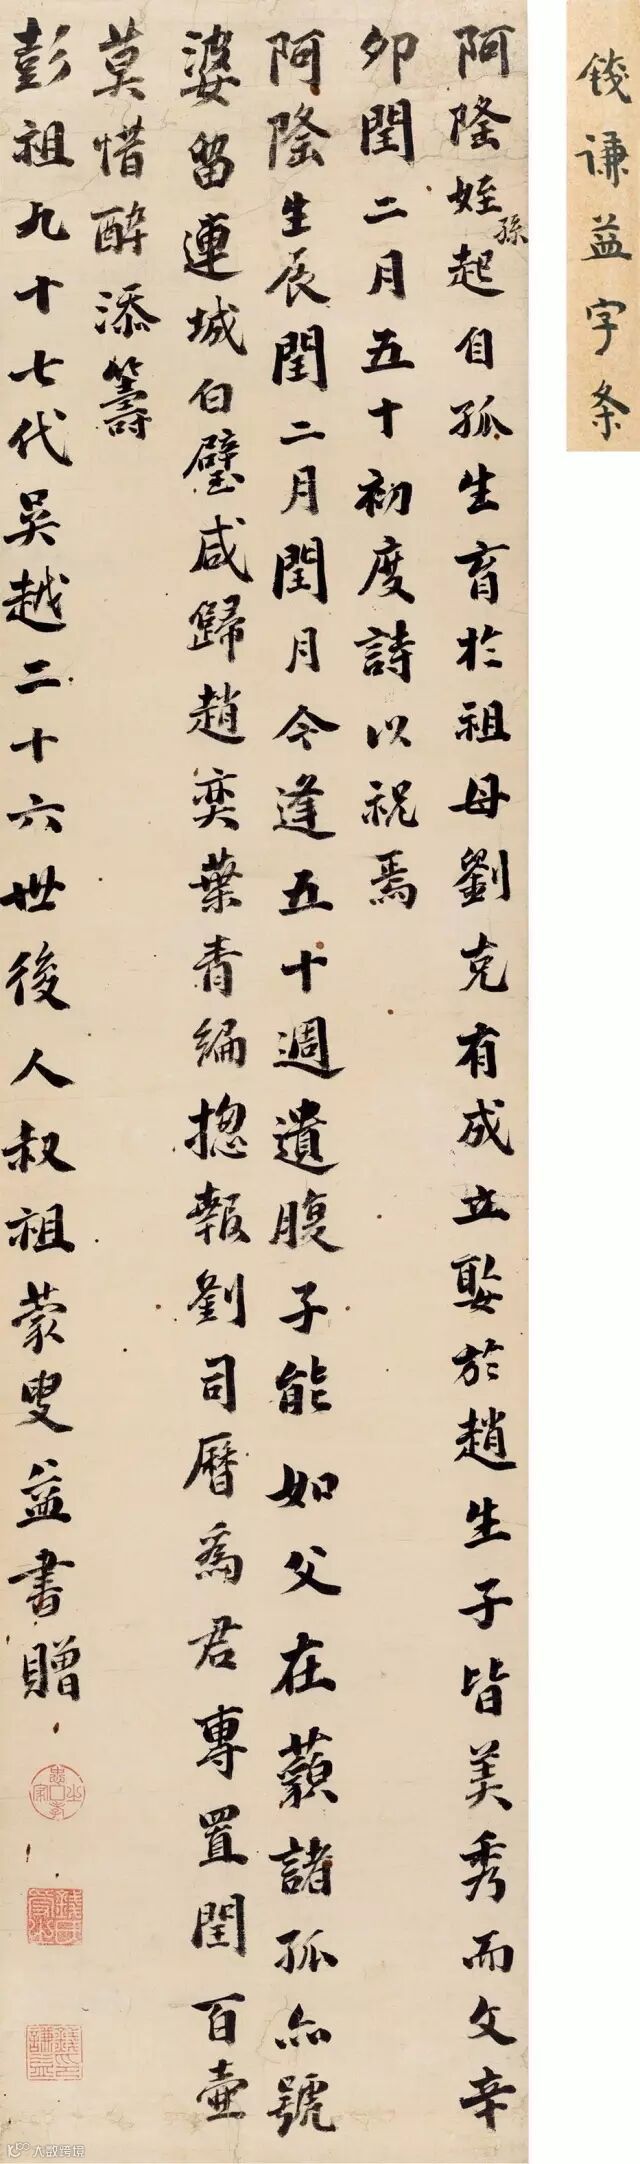 錢谦益字条
阿隆姪孫起自孤生育於祖母劉克有成立娶於趙生子皆美秀而文辛
卯閏二月五十初度詩以祝焉
阿隆生辰閏二月閏月今逢五十週遺腹子能如父在藐諸孤亦號
婆留連城白璧咸歸趙奕葉青編揔報劉司曆為君專置閏百壺
莫惜醉添籌
彭祖九十七代吳越二十六世後人叔祖蒙叟益書贈
大数跨境